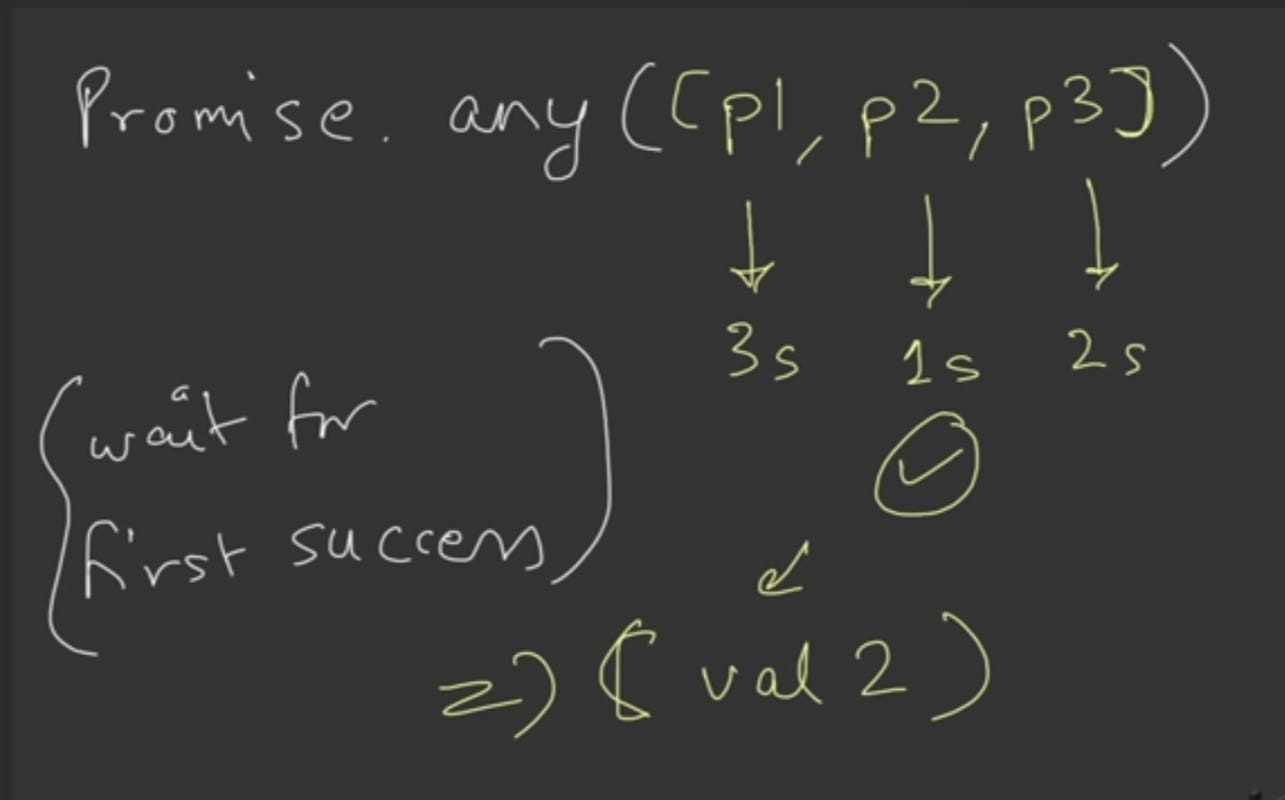 Promise. any ([p1, p2, p3])
3s 1s 2s
(wait for
first success)
=> ( val 2 )